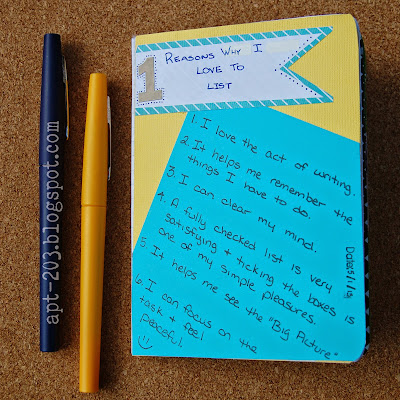 1
REASONS WHY I
LOVE TO
LIST
1. I love the act of writing.
2. It helps me remember the
things I have to do.
3. I can clear my mind.
4. A fully checked list is very
satisfying + ticking the boxes is
one of my simple pleasures.
5. It helps me see the "Big Picture"
6. I can focus on the
task + feel
peaceful
apt-203.blogspot.com